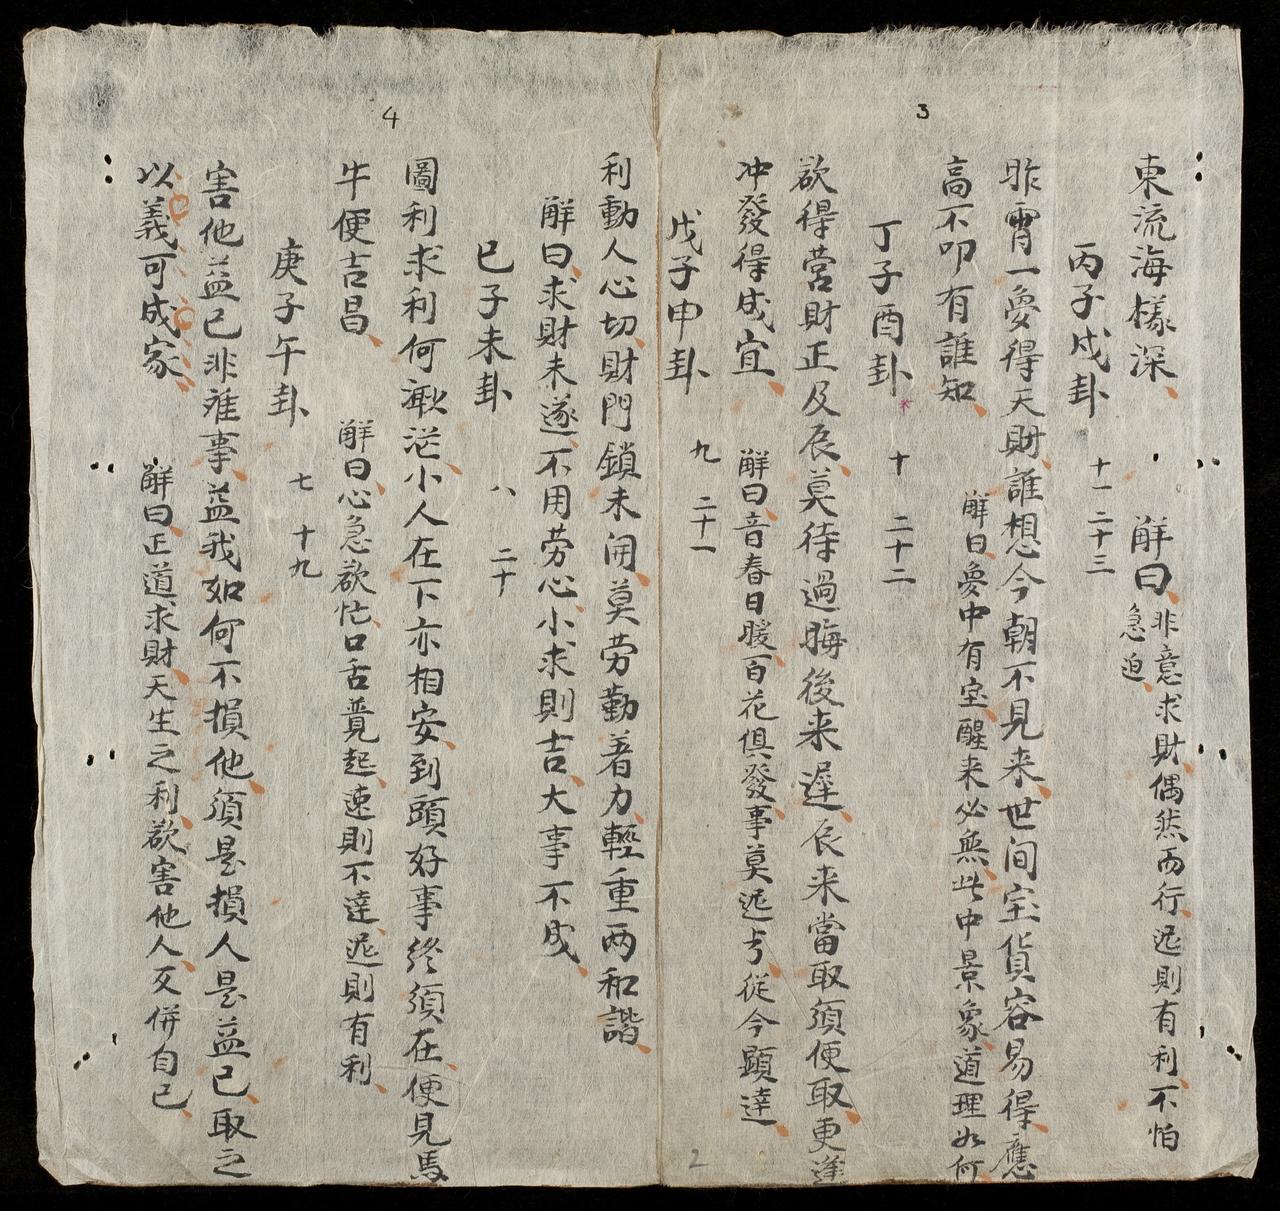 3
東流海樣深 解曰非意求財偶然而行迟則有利不怕
急迫
丙子戌卦 十一 二十三
昨霄一夢得天財誰想今朝不見来世间宝貨容易得應
高不叩有誰知 解曰夢中有宝醒来必無此中景象道理如何
丁子酉卦 十 二十二
欲得营財正及辰莫待過晦後来遲辰来當取須便取更逢
冲發得成宜 解曰音春日暖百花俱發事莫迟亏從今顕達
戊子申卦 九 二十一
2
4
利動人心切財門鎖未開莫劳勤着力輕重两和諧
解曰求財未遂不用劳心小求則吉大事不成
已子未卦 八 二十
圖利求利何漖茫小人在下亦相安到頭好事終須在便見馬
牛便吉昌 解曰心急欲忙口舌竟起速則不達迟則有利
庚子午卦 七 十九
害他益已非难事益我如何不損他須是損人是益已取之
以義可成家 解曰正道求財天生之利欲害他人反併自已